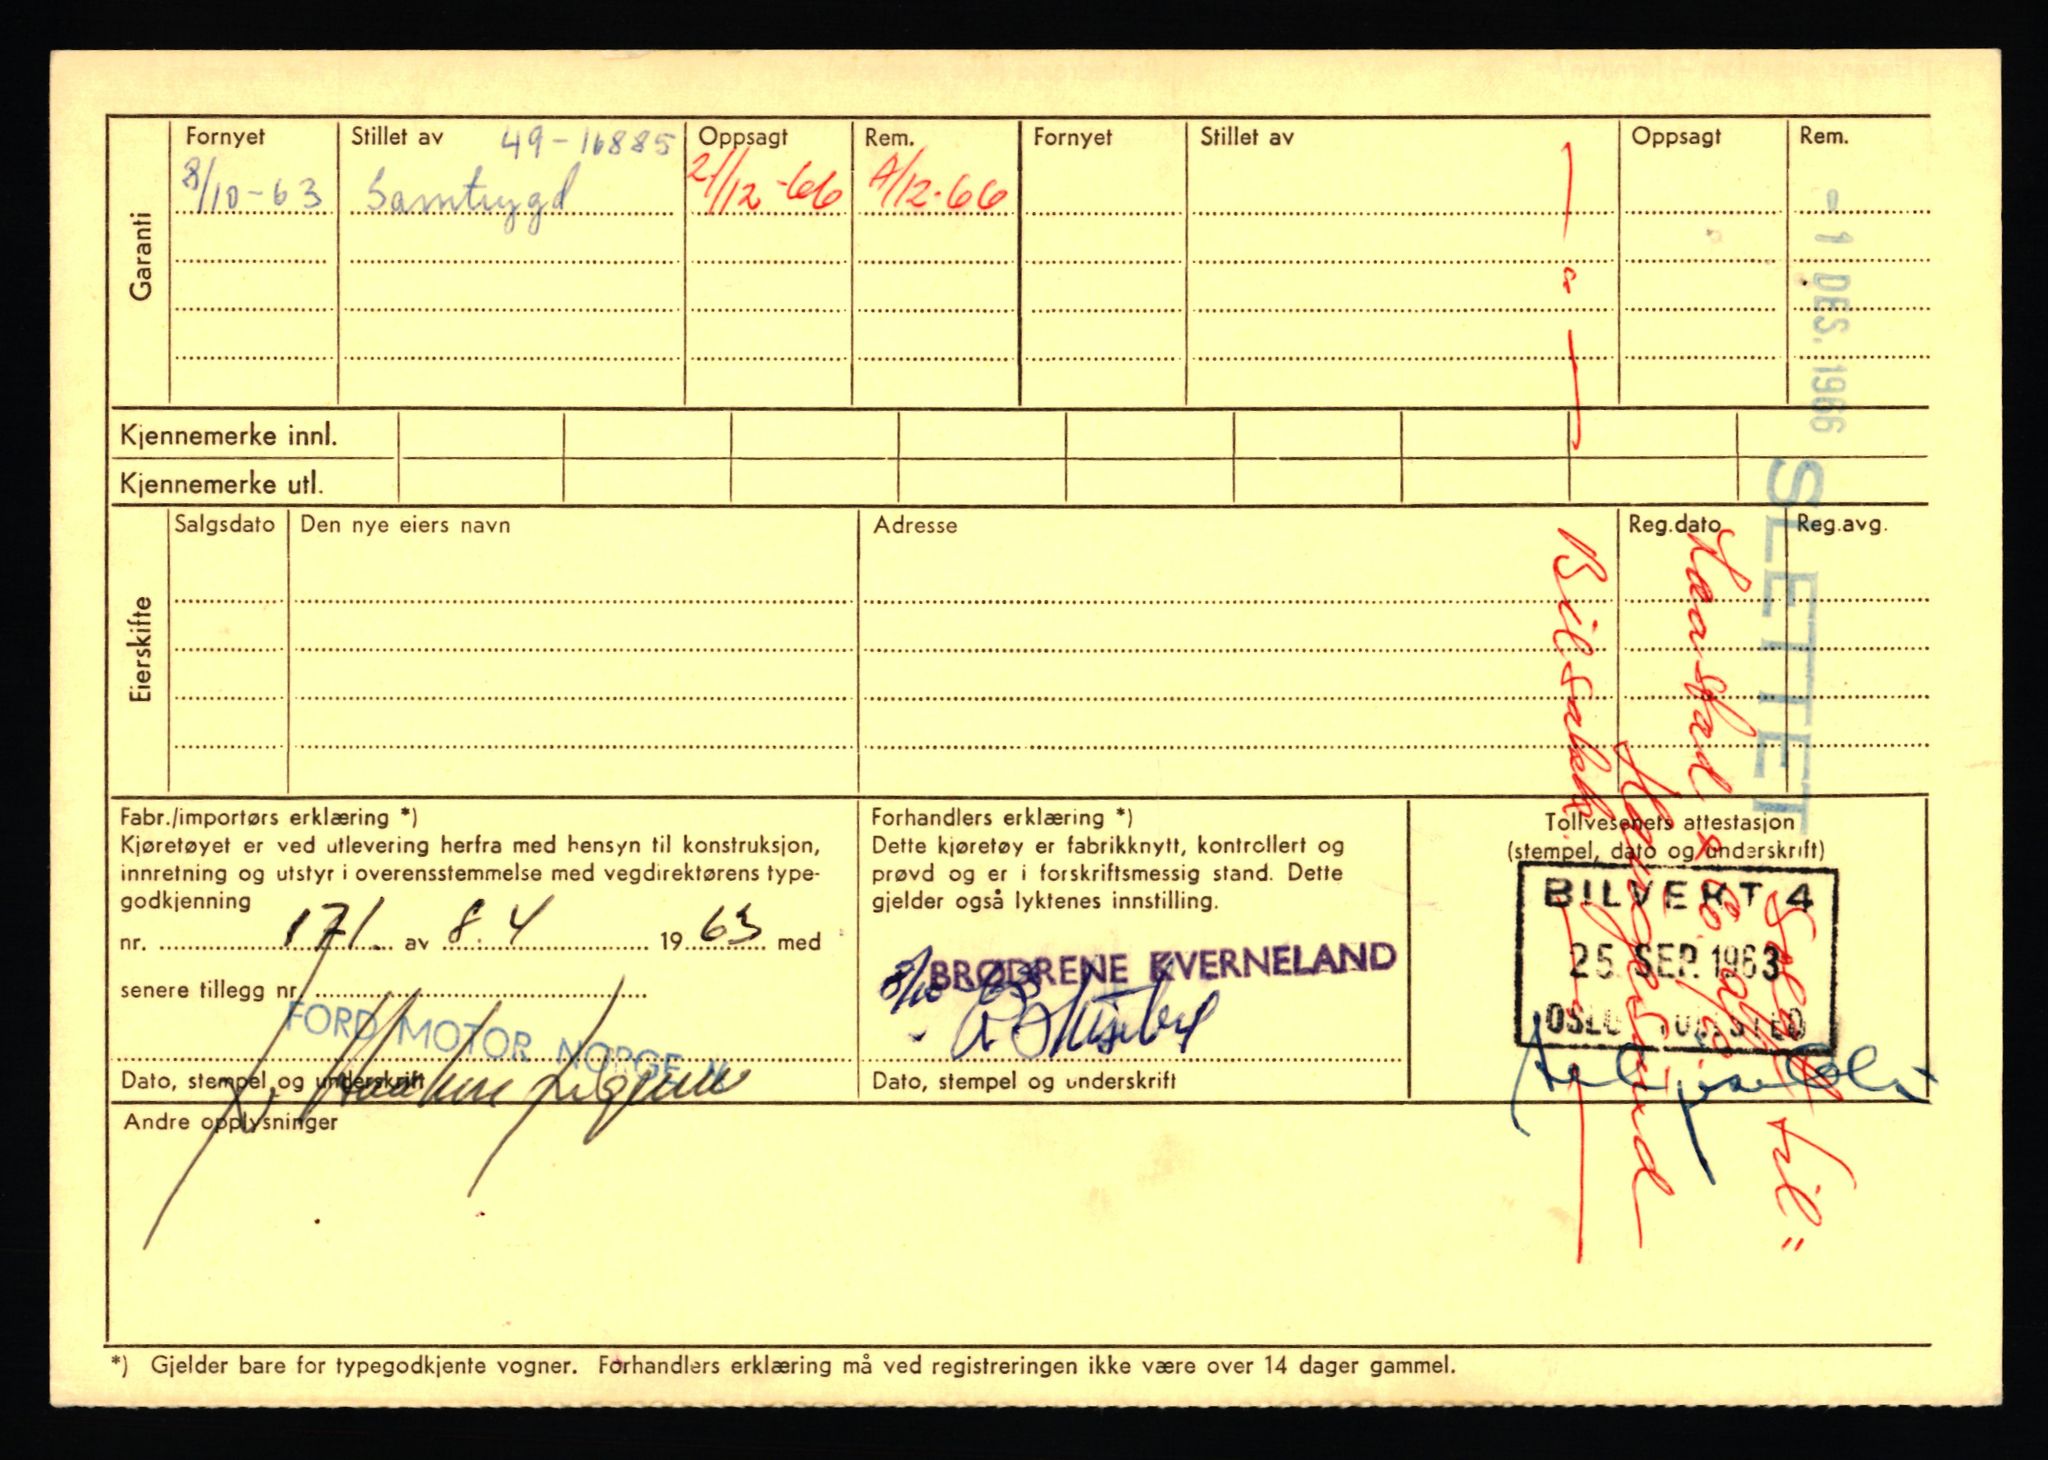 Garanti
Fornyet
Stillet av 49-16885
Oppsagt
Rem.
Fornyet
Stillet av
Oppsagt
Rem.
8/10-63 Samtrygd 21/12-66 /12-66
- 1 DES. 1966
SLETTET
Kjennemerke innl.
Kjennemerke utl.
Eierskifte
Salgsdato
Den nye eiers navn
Adresse
Reg.dato
Reg.avg.
Solgt til
Haugesund
Fabr./importørs erklæring *)
Kjøretøyet er ved utlevering herfra med hensyn til konstruksjon,
innretning og utstyr i overensstemmelse med vegdirektørens type-
godkjenning
nr. 171. av 8.4 1963 med
senere tillegg nr.
FORD MOTOR NORGE
Dato, stempel og underskrift
Forhandlers erklæring *)
Dette kjøretøy er fabrikknytt, kontrollert og
prøvd og er i forskriftsmessig stand. Dette
gjelder også lyktenes innstilling.
8/10 63
BRØDRENE KVERNELAND
Dato, stempel og underskrift
Tollvesenets attestasjon
(stempel, dato og underskrift)
BILVEKT 4
25. SEP. 1963
OSLO TOLLSTED
Andre opplysninger
*) Gjelder bare for typegodkjente vogner. Forhandlers erklæring må ved registreringen ikke være over 14 dager gammel.